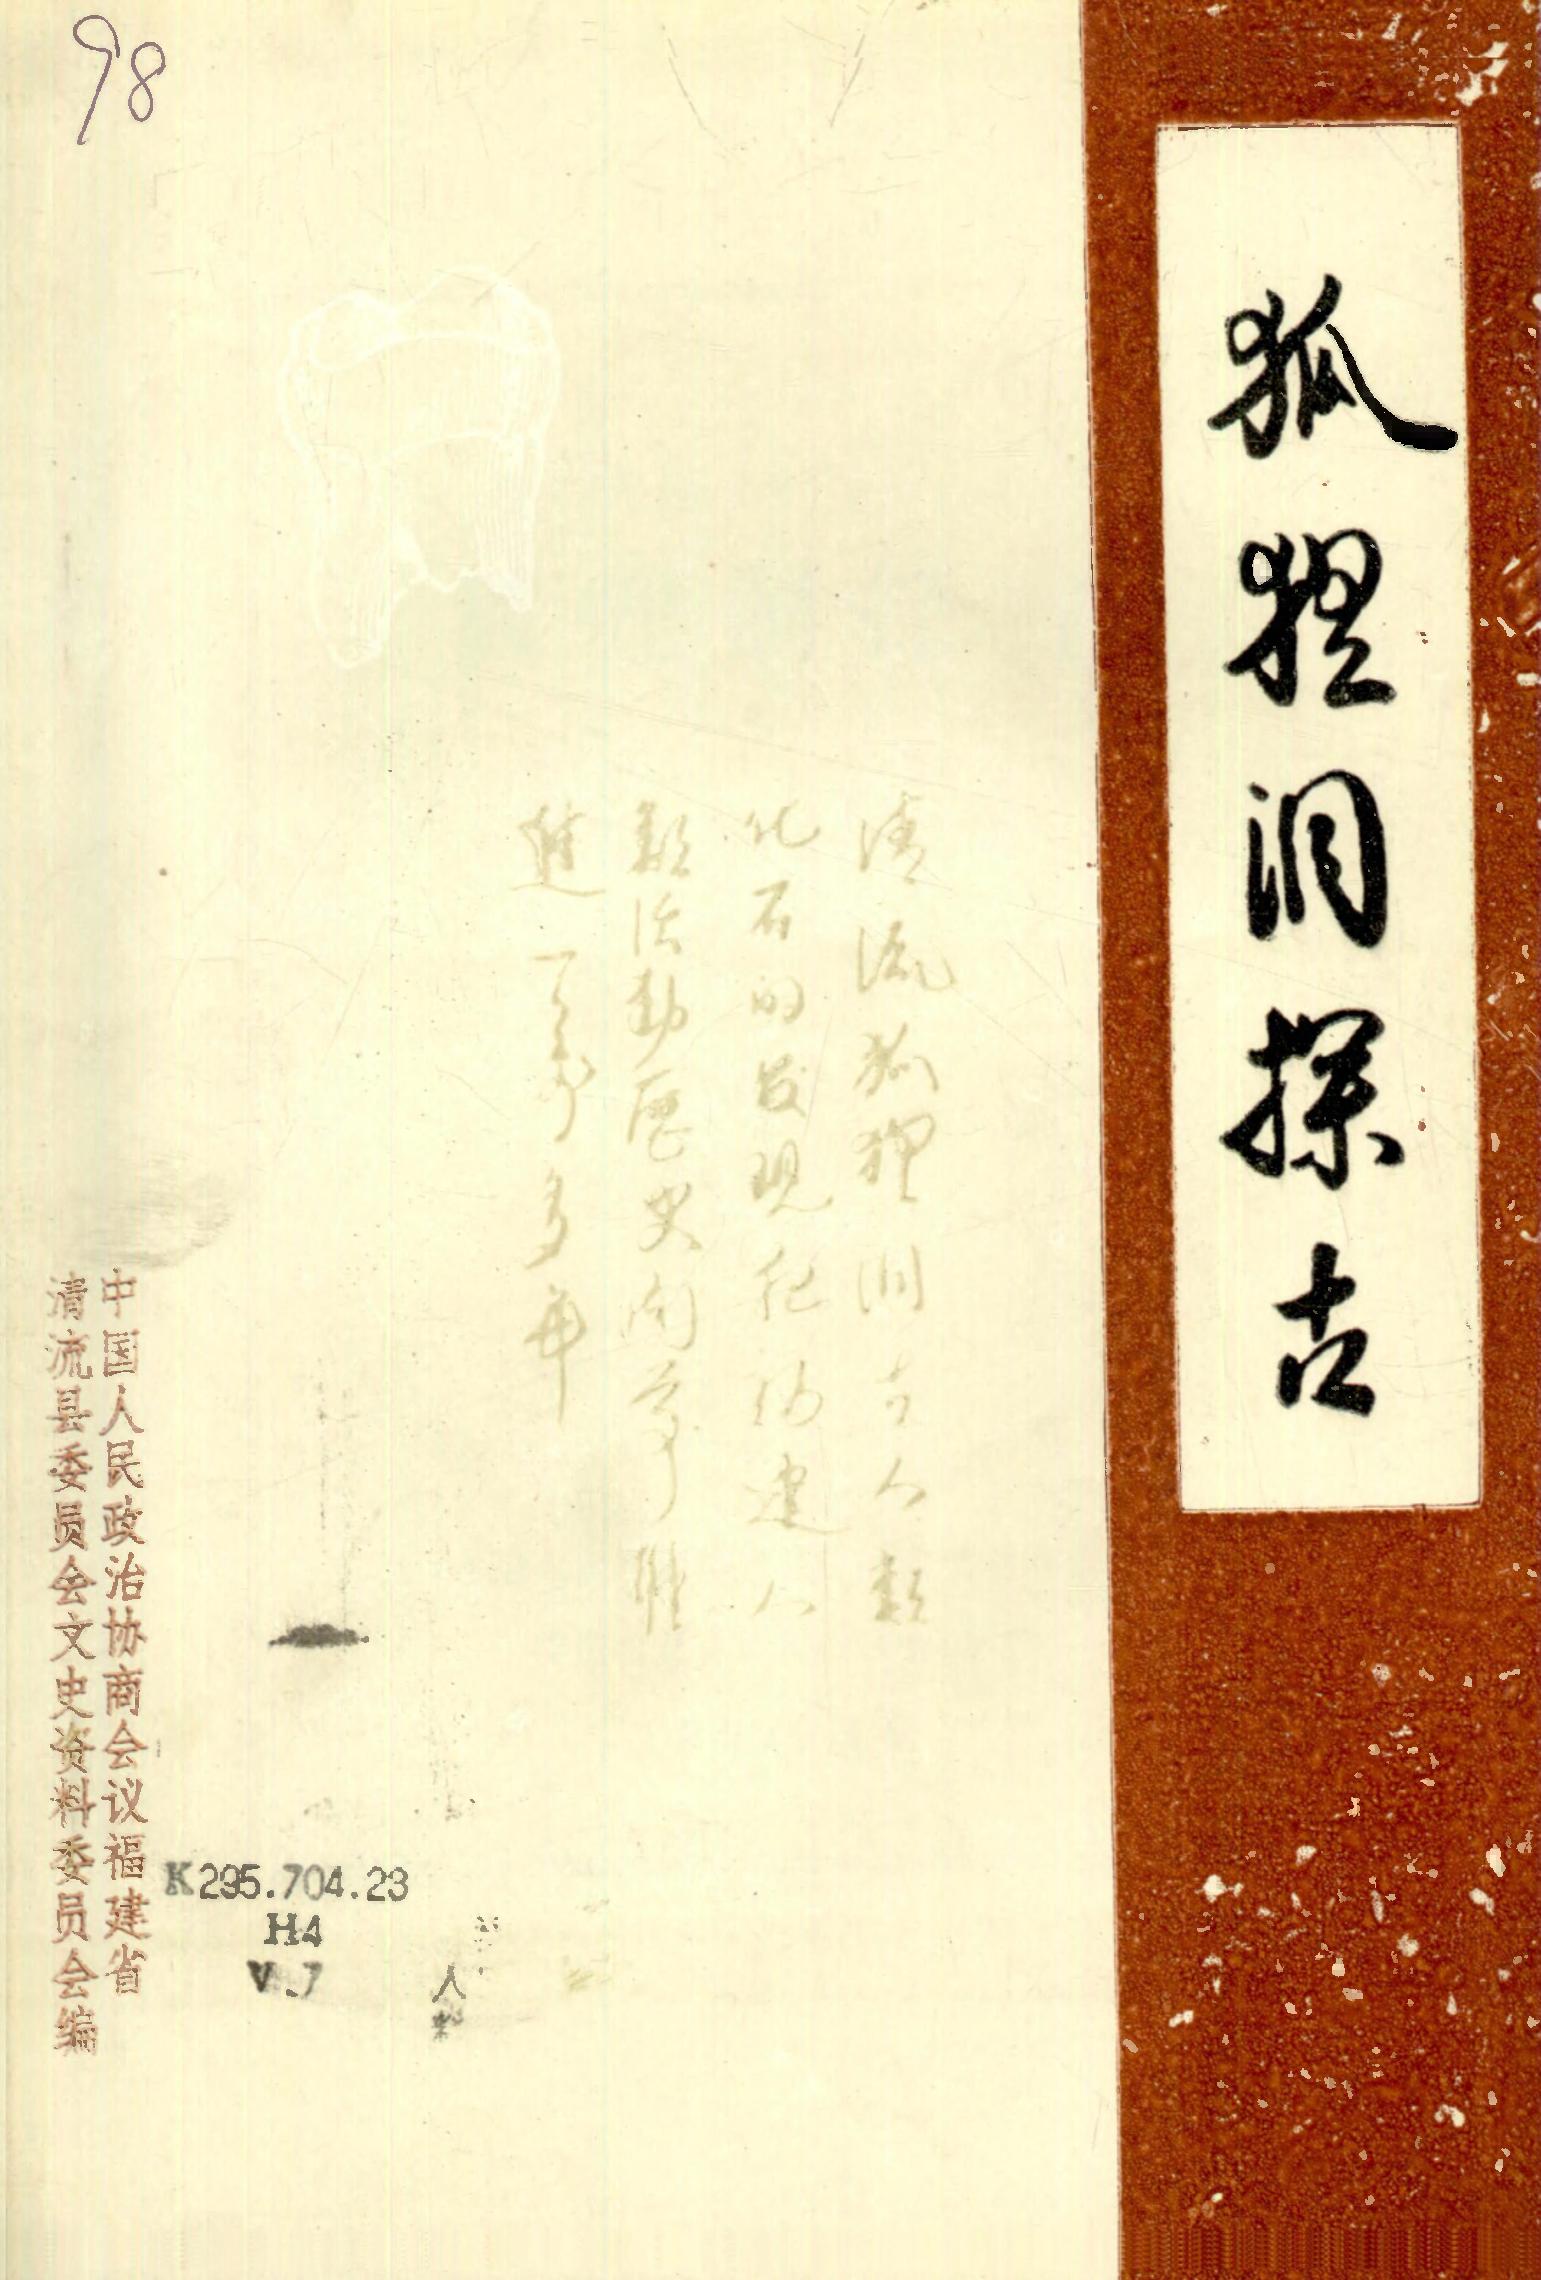 98
狐狸洞探古
清流狐狸洞古人類
化石的发现把福建人
類活动历史向前推
進一万多年
中国人民政治协商会议福建省
清流县委员会文史资料委员会编
K295.704.23
H4
V.7
人